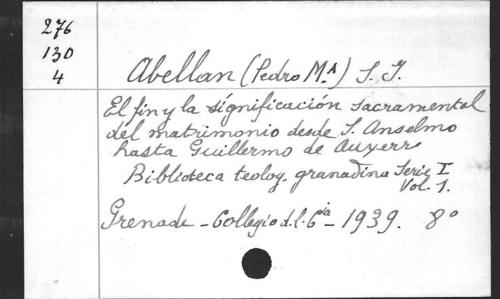 276
130
4
Abellan (Pedro Mª) S. J.
El fin y la significación sacramental
del matrimonio desde S. Anselmo
hasta Guillermo de Auxerre
Biblioteca teolog. granadina Serie I
Vol. 1.
Grenade - Collegio d. l. Cia - 1939. 8°